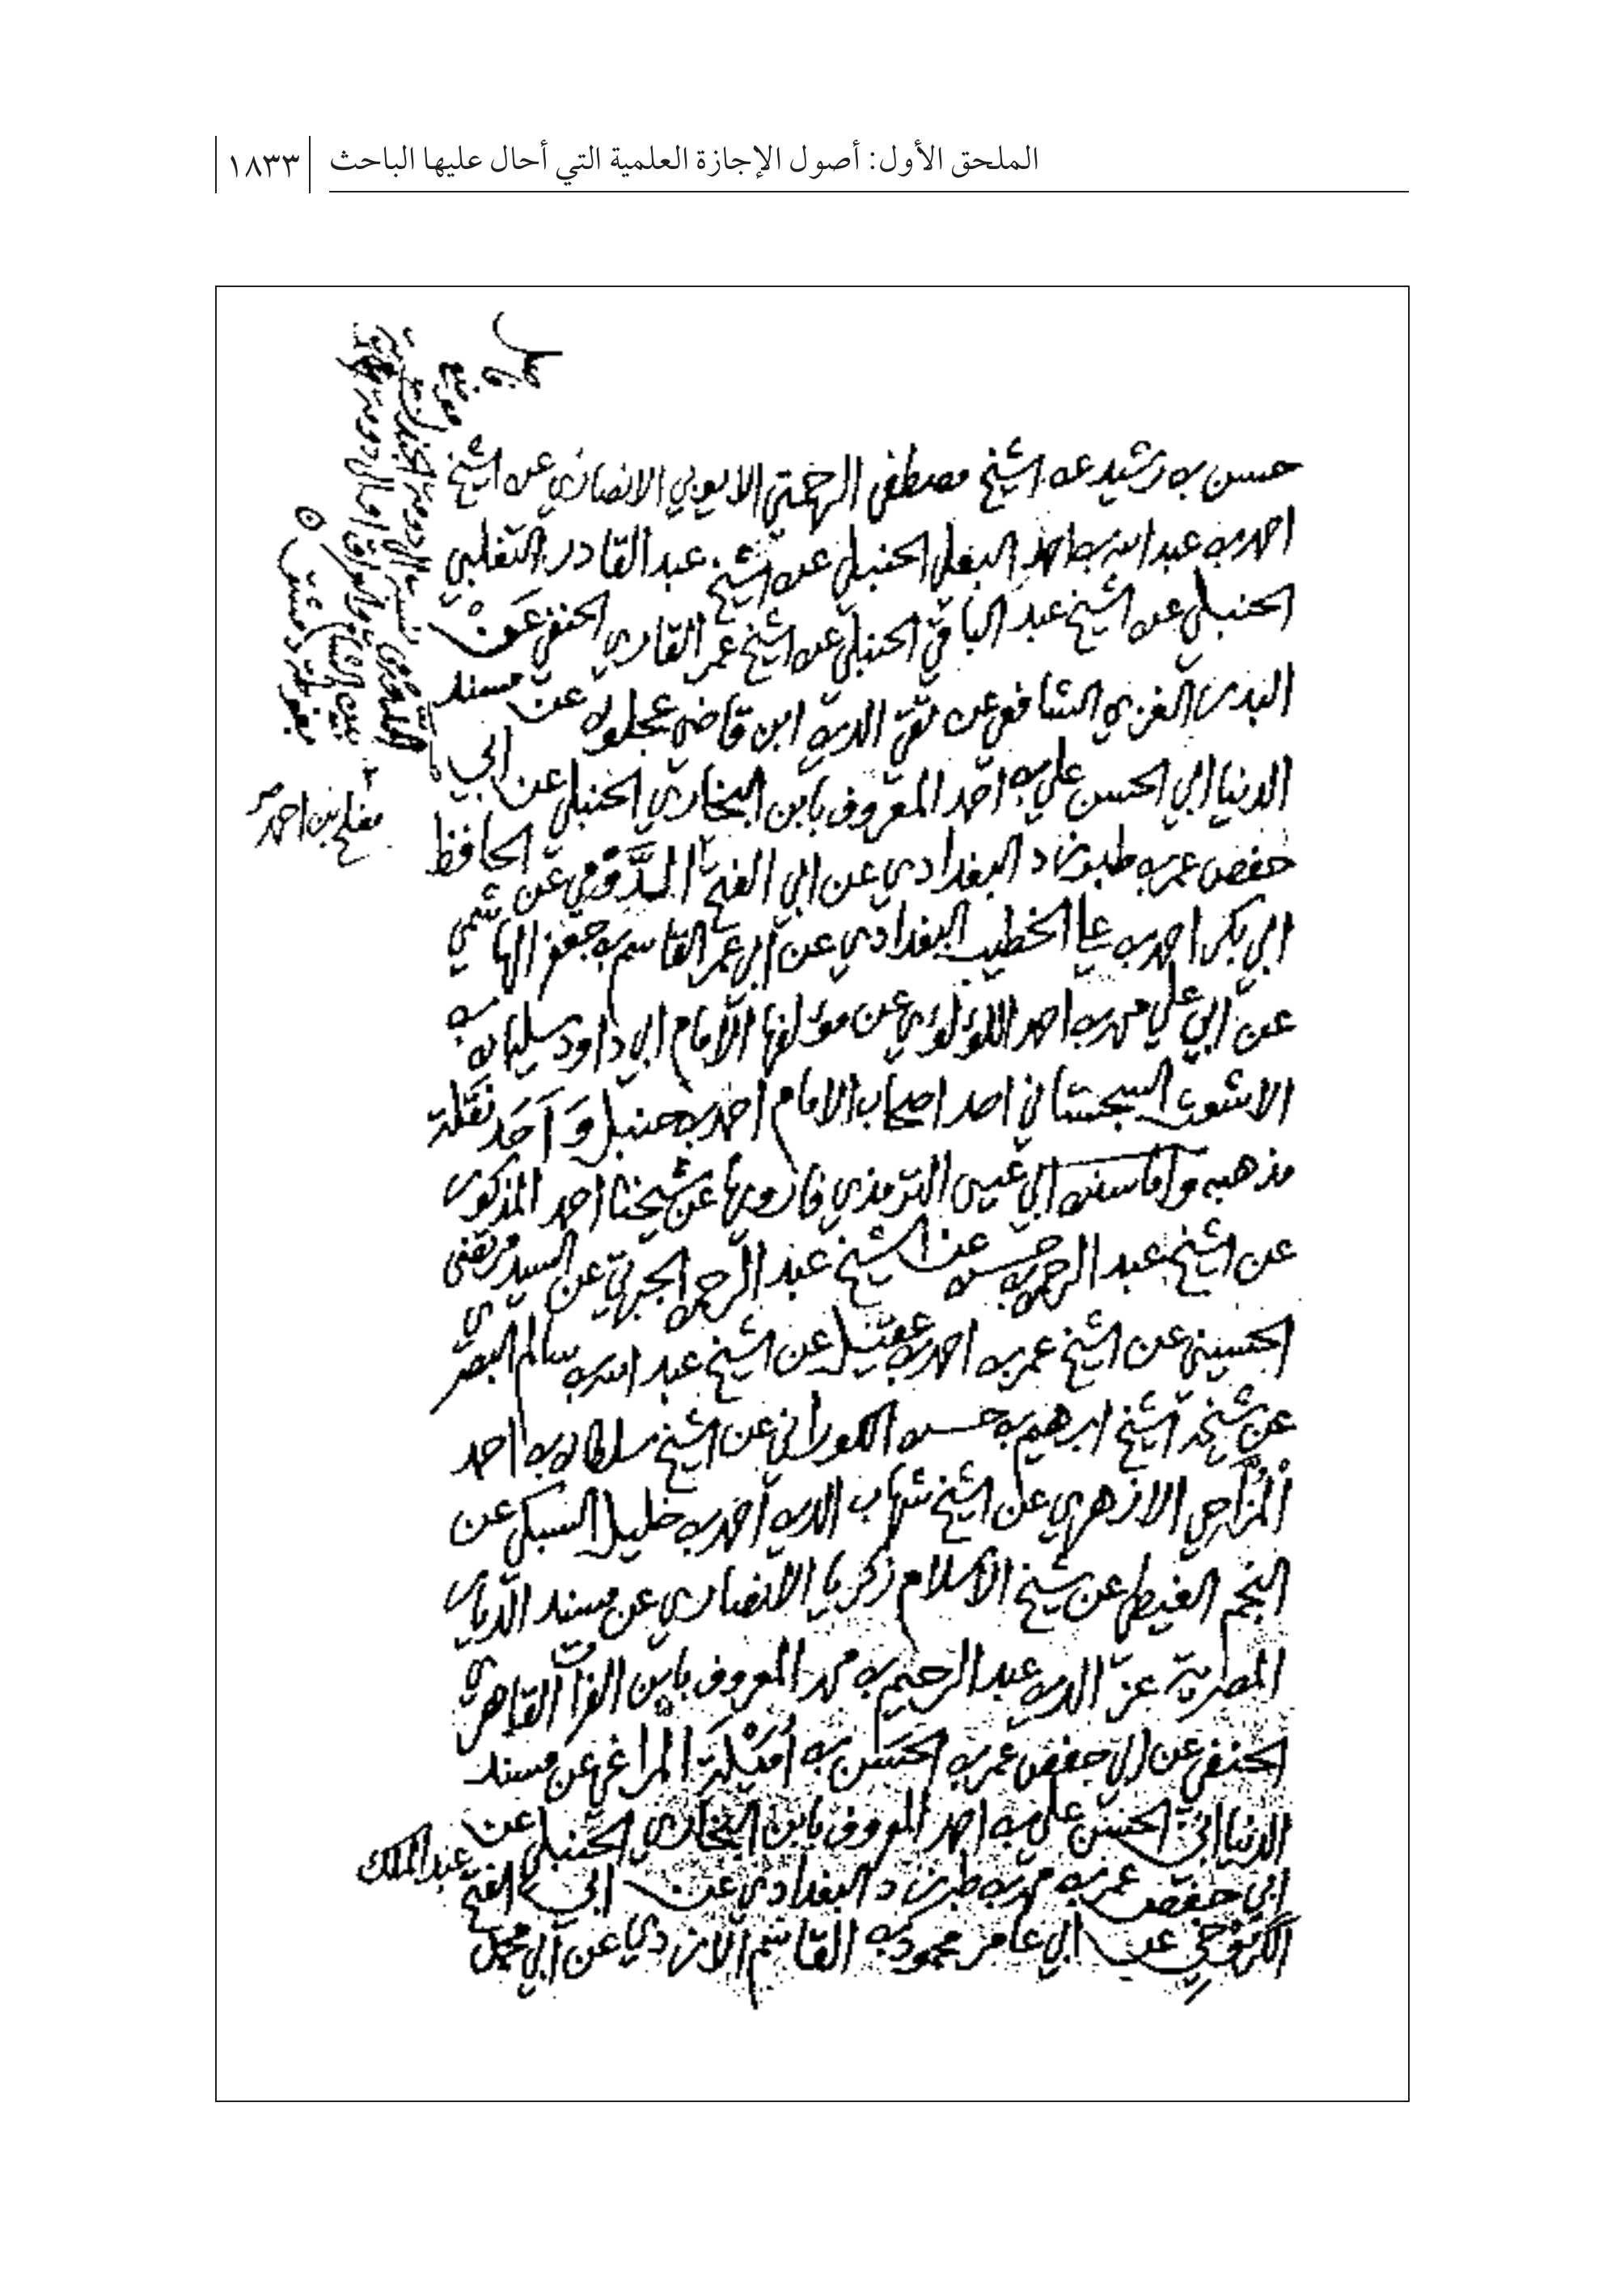 الملحق الأول: أصول الإجازة العلمية التي أحال عليها الباحث
١٨٣٣
حسن بن رشيد عن الشيخ مصطفى الرحمتي الايوبي الانصاري عن الشيخ
احمد بن عبد الله بن احمد البعلي الحنبلي عن الشيخ عبد القادر التغلبي
الحنبلي عن الشيخ عبد الباقي الحنبلي عن الشيخ عمر القاري الحنفي عن
البدر الغزي الشافعي عن تقي الدين ابن قاضي عجلون عن مسند
الدنيا ابي الحسن علي بن احمد المعروف بابن البخاري الحنبلي عن ابي
حفص عمر بن طبرزد البغدادي عن ابي الفتح الدَّومي عن الحافظ
مفلح بن احمد صح
ابي بكر احمد بن علي الخطيب البغدادي عن ابي عمر القاسم بن جعفر الهاشمي
عن ابي علي محمد بن احمد اللؤلؤي عن مؤلفها الامام ابي داود سليمان بن
الاشعث السجستاني احد اصحاب الامام احمد بن حنبل وَاَحَد نَقَلَة
مذهبه واما سنن ابي عيسى الترمذي فارويها عن شيخنا احمد المذكور
عن الشيخ عبد الرحمن بن حسن عن الشيخ عبد الرحمن الجبرتي عن السيد مرتضى
الحسيني عن الشيخ عمر بن احمد بن عقيل عن الشيخ عبد الله بن سالم البصري
عن شيخه الشيخ ابرهيم بن حسن الكوراني عن الشيخ سلطان بن احمد
المزّاحي الازهري عن الشيخ شهاب الدين احمد بن خليل السبكي عن
النجم الغيطي عن شيخ الاسلام زكريا الانصاري عن مسند الديار
المصرية عزّ الدين عبد الرحيم بن محمد المعروف بابن الفرات القاهري
الحنفي عن ابي حفص عمر بن الحسن بن اُمَيْلَة المراغي عن مسند
الدنيا ابي الحسن علي بن احمد المعروف بابن البخاري الحنبلي عن
ابي حفص عمر بن محمد بن طبرزد البغدادي عن ابي الفتح عبد الملك
الكَروخي عن ابي عامر محمود بن القاسم الازدي عن ابي محمد